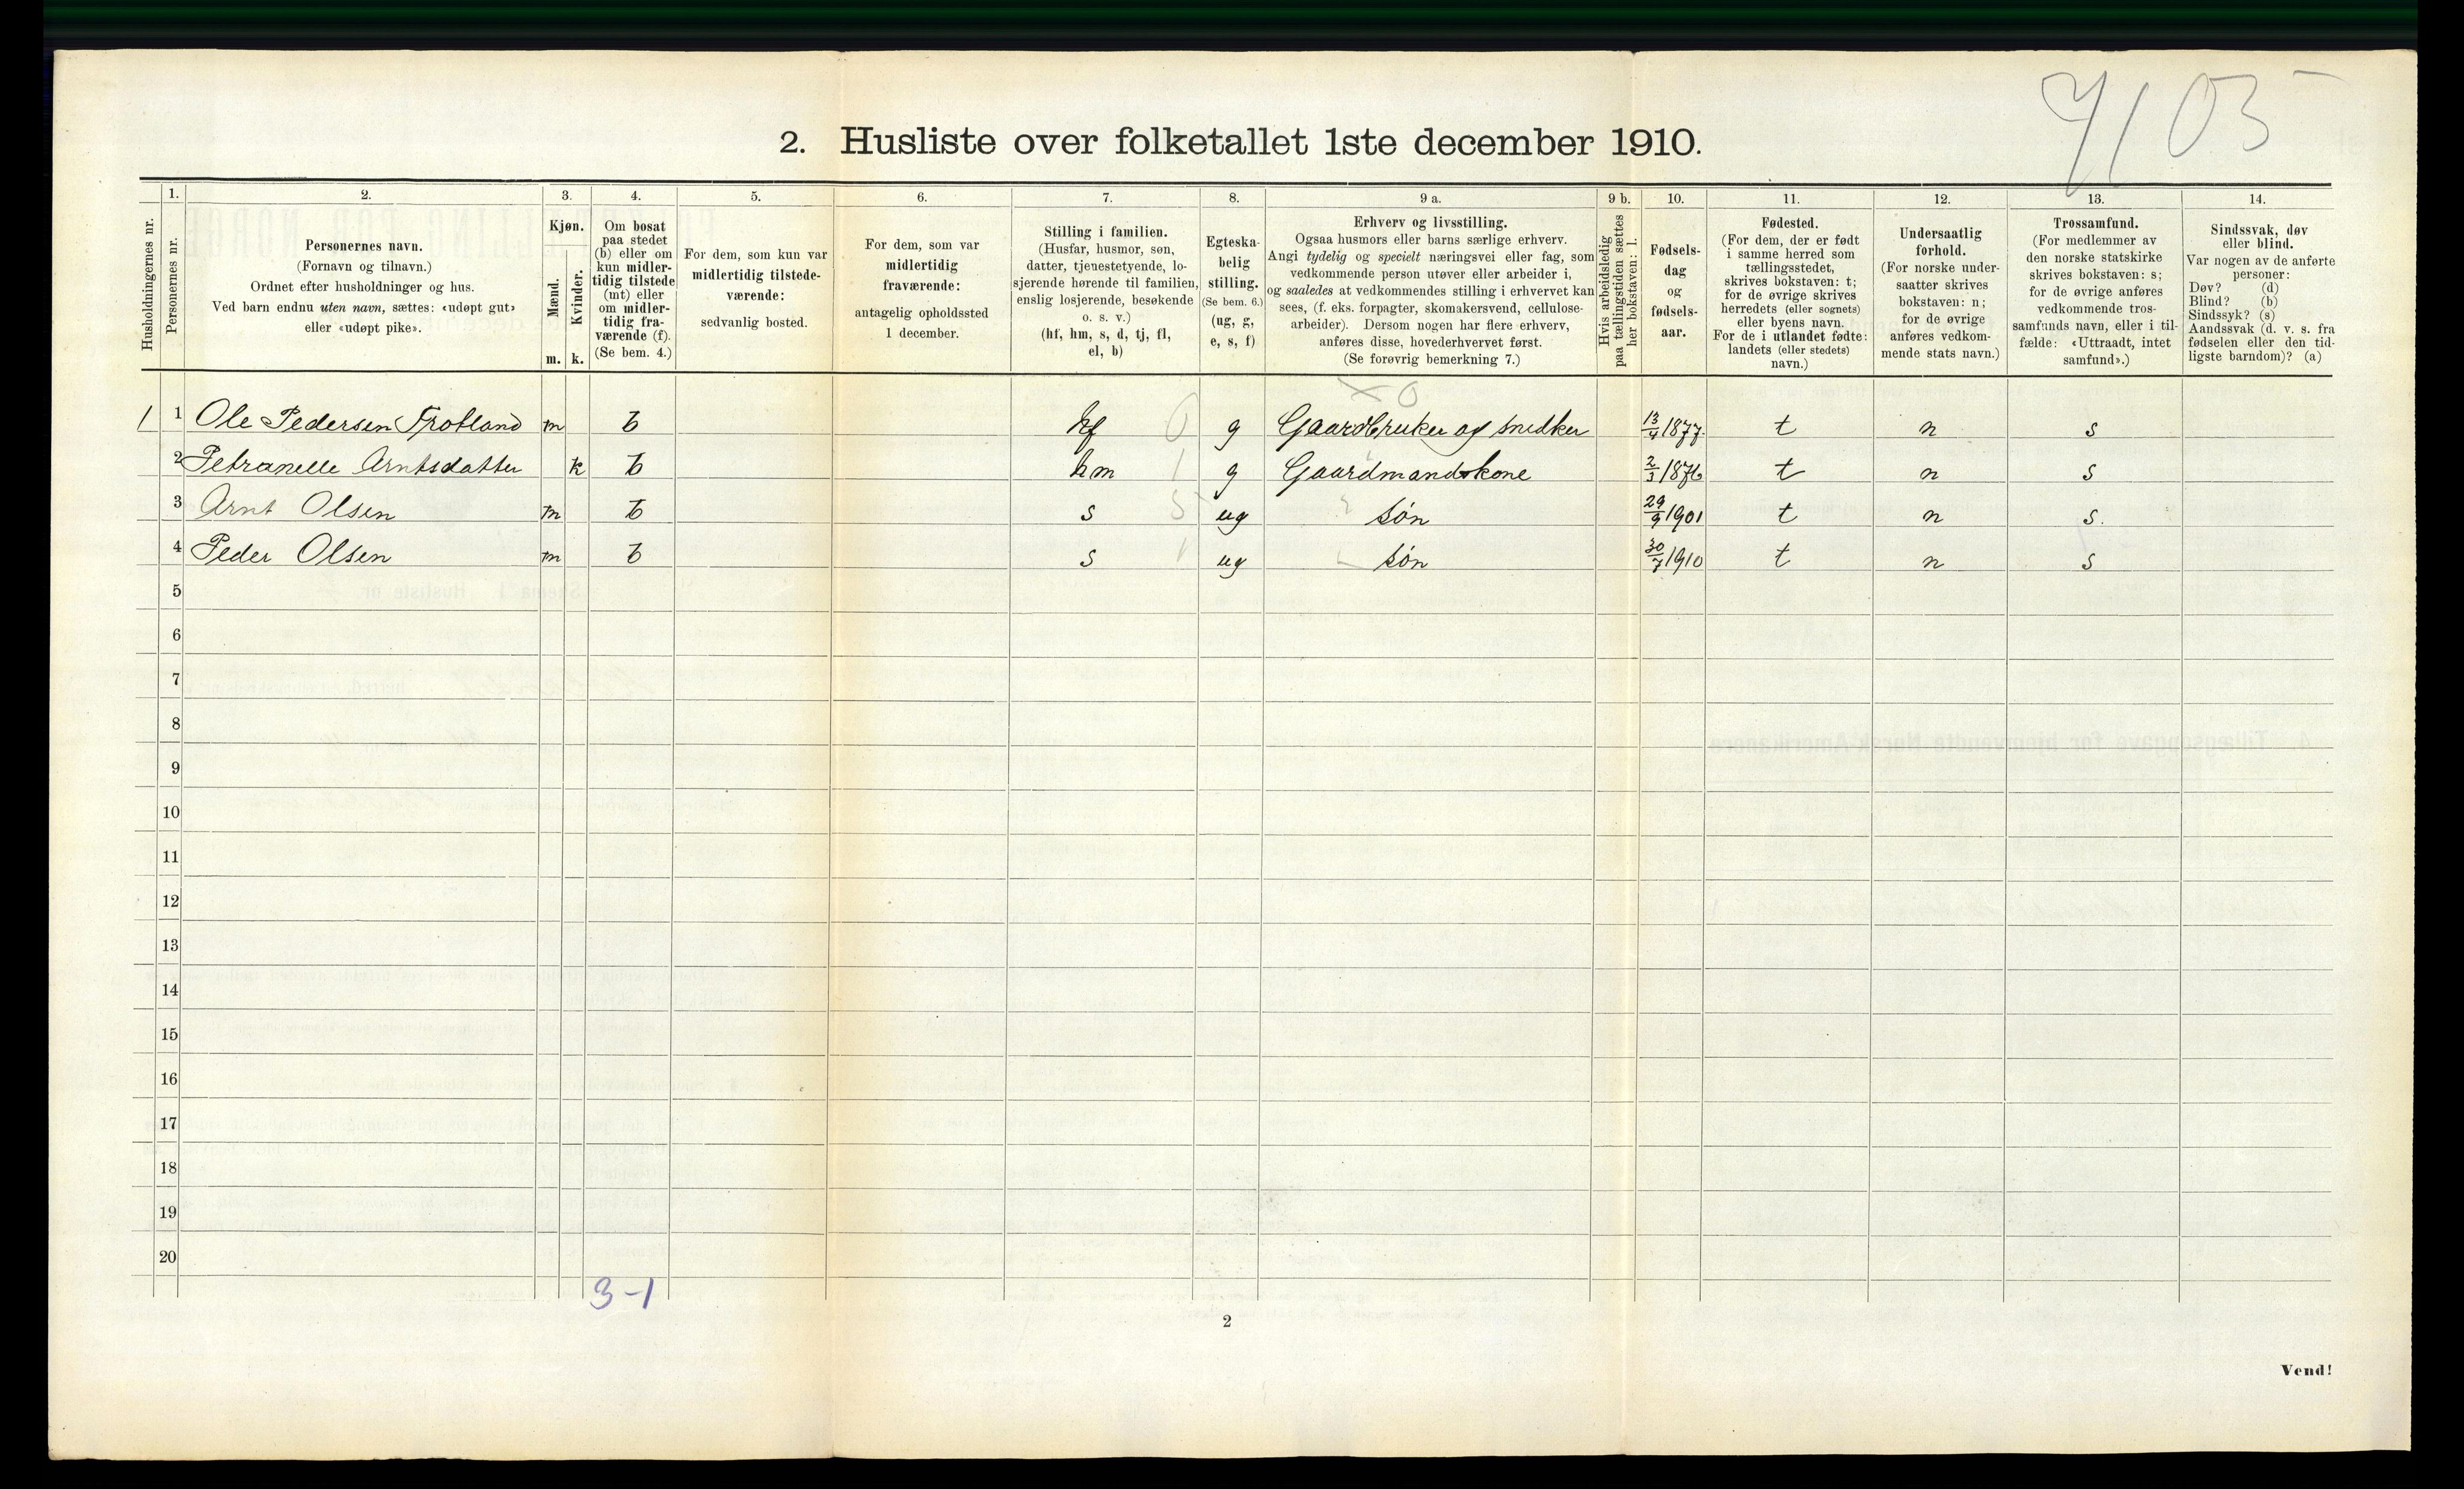 2. Husliste over folketallet 1ste december 1910.
Husholdningernes nr.
1. Personernes nr.
2. Personernes navn.
(Fornavn og tilnavn.)
Ordnet efter husholdninger og hus.
Ved barn endnu uten navn, sættes: «udøpt gut»
eller «udøpt pike».
3. Kjøn.
Mænd. m.
Kvinder. k.
4. Om bosat
paa stedet
(b) eller om
kun midler-
tidig tilstede
(mt) eller
om midler-
tidig fra-
værende (f).
(Se bem. 4.)
5. For dem, som kun var
midlertidig tilstede-
værende:
sedvanlig bosted.
6. For dem, som var
midlertidig
fraværende:
antagelig opholdssted
1 december.
7. Stilling i familien.
(Husfar, husmor, søn,
datter, tjenestetyende, lo-
sjerende hørende til familien,
enslig losjerende, besøkende
o. s. v.)
(hf, hm, s, d, tj, fl,
el, b)
8. Egteska-
belig
stilling.
(Se bem. 6.)
(ug, g,
e, s, f)
9 a. Erhverv og livsstilling.
Ogsaa husmors eller barns særlige erhverv.
Angi tydelig og specielt næringsvei eller fag, som
vedkommende person utøver eller arbeider i,
og saaledes at vedkommendes stilling i erhvervet kan
sees, (f. eks. forpagter, skomakersvend, cellulose-
arbeider). Dersom nogen har flere erhverv,
anføres disse, hovederhvervet først.
(Se forøvrig bemerkning 7.)
9 b. Hvis arbeidsledig
paa tællingstiden sættes
her bokstaven: l.
10. Fødsels-
dag
og
fødsels-
aar.
11. Fødested.
(For dem, der er født
i samme herred som
tællingsstedet,
skrives bokstaven: t;
for de øvrige skrives
herredets (eller sognets)
eller byens navn.
For de i utlandet fødte:
landets (eller stedets)
navn.)
12. Undersaatlig
forhold.
(For norske under-
saatter skrives
bokstaven: n;
for de øvrige
anføres vedkom-
mende stats navn.)
13. Trossamfund.
(For medlemmer av
den norske statskirke
skrives bokstaven: s;
for de øvrige anføres
vedkommende tros-
samfunds navn, eller i til-
fælde: «Uttraadt, intet
samfund».)
14. Sindssvak, døv
eller blind.
Var nogen av de anførte
personer:
Døv? (d)
Blind? (b)
Sindssyk? (s)
Aandssvak (d. v. s. fra
fødselen eller den tid-
ligste barndom)? (a)
X 0
1 1 Ole Pedersen Trotland m b hf 0 g Gaardbruker og snedker 13/4 1877 t n s
2 Petranelle Arntsdatter k b hm 1 g Gaardmandskone 2/3 1876 t n s
3 Arnt Olsen m b s 5 ug søn 29/9 1901 t n s.
4 Peder Olsen m b s 1 ug søn 30/7 1910 t n s
5
6
7
8
9
10
11
12
13
14
15
16
17
18
19
20
3-1
2
Vend!